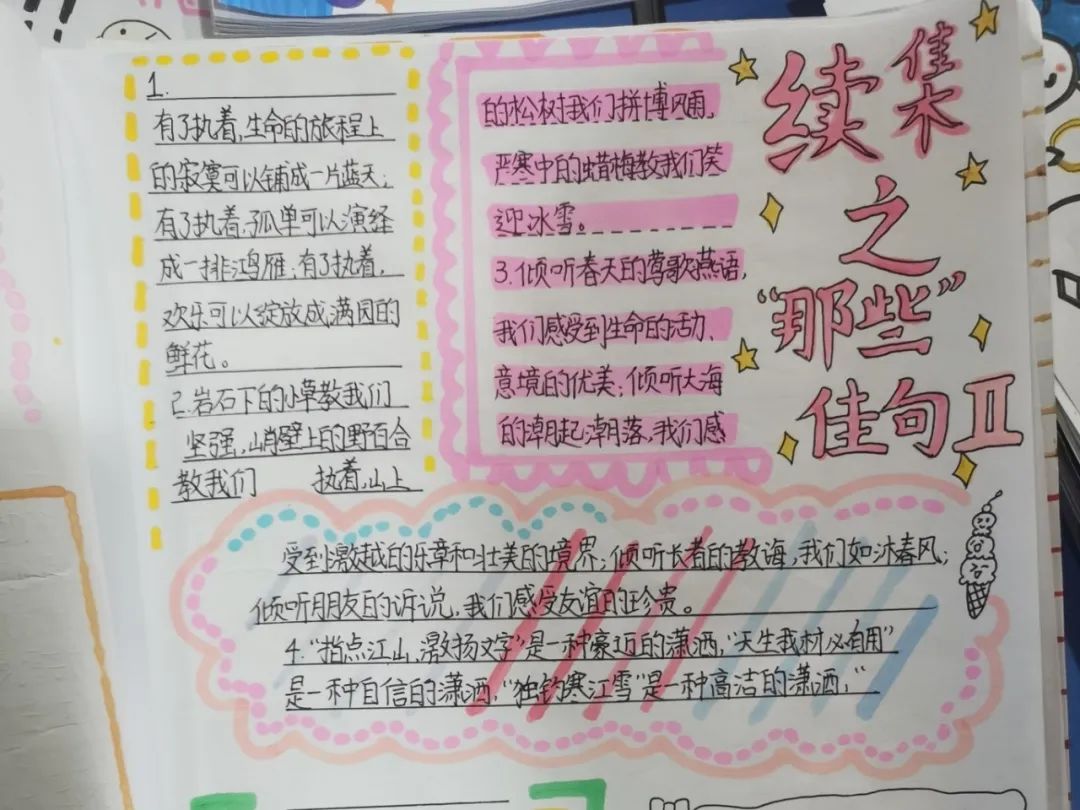 续佳木
之
“那些”
佳句Ⅱ
1.
有了执着,生命的旅程上
的寂寞可以铺成一片蓝天;
有了执着,孤单可以演绎
成一排鸿雁;有了执着,
欢乐可以绽放成满园的
鲜花。
2.岩石下的小草教我们
坚强,峭壁上的野百合
教我们 执着,山上
的松树教我们拼搏风雨,
严寒中的蜡梅教我们笑
迎冰雪。
3.倾听春天的莺歌燕语,
我们感受到生命的活力、
意境的优美;倾听大海
的潮起潮落,我们感
受到激越的乐章和壮美的境界;倾听长者的教诲,我们如沐春风;
倾听朋友的诉说,我们感受友谊的珍贵。
4.“指点江山,激扬文字”是一种豪迈的潇洒,“天生我材必有用”
是一种自信的潇洒,“独钓寒江雪”是一种高洁的潇洒,“